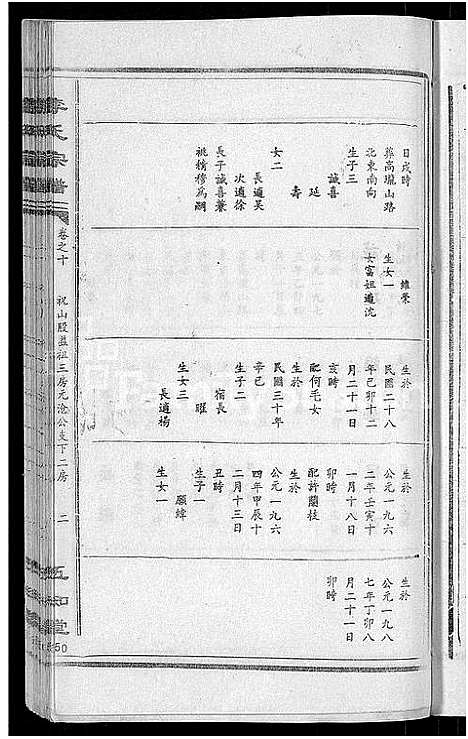 日戌時
葬高壠山路
北東南向
生子三
誠喜
延
壽
女二
長適吳
次適徐
長子誠喜兼
祧積穆為嗣
維榮
生女一
女富妞適沈
生於
民國二十八
年己卯十二
月二十一日
亥時
配何毛女
生於
民國三十年
辛巳
生子二
宿長
曜
生女三
長適楊
生於
公元一九六
二年壬寅十
一月十八日
卯時
配許蘭枝
生於
公元一九六
四年甲辰十
二月十三日
丑時
生子一
願緯
生女一
生於
公元一九八
七年丁卯八
月二十一日
卯時
李氏宗譜
卷之十
祝山殷盥祖三房元滄公支下二房
二
五知堂
50